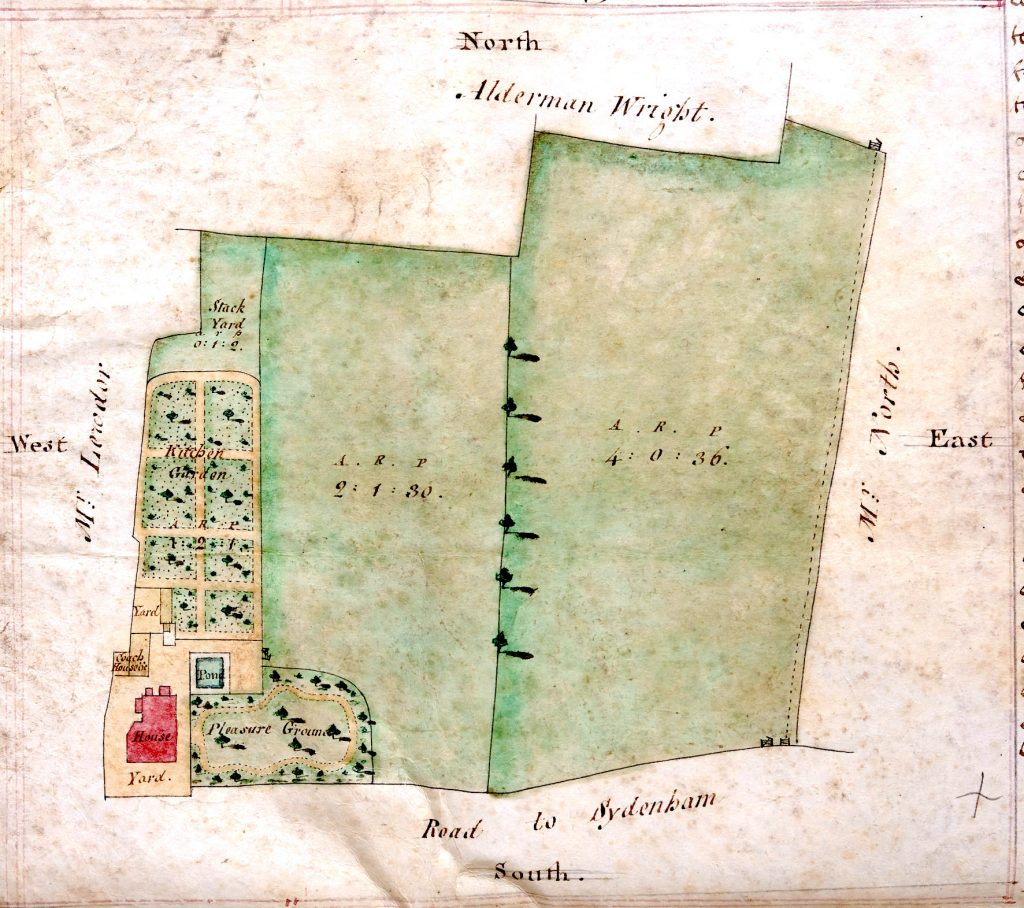 North
Alderman Wright.
Stack
Yard
a r p
0:1:2.
West
Kitchen
Garden
A R P
1:2:1
A. R. P
2:1:30.
A. R. P.
4:0:36.
Mr. North.
East
Yard
Coach
House
Pond
House
Pleasure Ground
Yard.
Road to Sydenham
South.